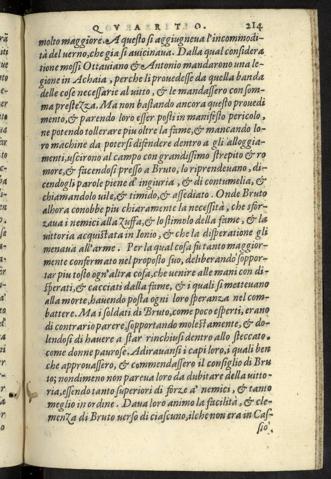 QVARTO. 214
molto maggiore. A questo si aggiugneua l'incommodi-
tà del uerno, che gia si auicinaua. Dalla qual considera
tione mossi Ottauiano & Antonio mandarono una le-
gione in Achaia, perche li prouedesse da quella banda
delle cose necessarie al uitto, & le mandassero con som-
ma prestezza. Ma non bastando ancora questo prouedi
mento, & parendo loro esser posti in manifesto pericolo,
ne potendo tollerare piu oltre la fame, & mancando lo-
ro machine da potersi difendere dentro a gli alloggia-
menti, uscirono al campo con grandissimo strepito & ro
more, & facendosi presso a Bruto, lo riprendeuano, di-
cendogli parole piene d'ingiuria, & di contumelia, &
chiamandolo uile, & timido, & assediato. Onde Bruto
alhora conobbe piu chiaramente la necessità, che sfor-
zaua i nemici alla zuffa, & lo stimolo della fame, & la
uittoria acquistata in Ionio, & che la disperatione gli
menaua all'arme. Per la qual cosa fu tanto maggior-
mente confermato nel proposito suo, deliberando soppor-
tar piu tosto ogn'altra cosa, che uenire alle mani con di-
sperati, & cacciati dalla fame, & i quali si metteuano
alla morte, hauendo posta ogni loro speranza nel com-
battere. Ma i soldati di Bruto, come poco esperti, erano
di contrario parere, sopportando molestamente, & do-
lendosi di hauere a star rinchiusi dentro allo steccato.
come donne paurose. Adirauansi i capi loro, i quali ben
che approuassero, & commendassero il consiglio di Bru
to; nondimeno non pareua loro da dubitare della uitto-
ria, essendo tanto superiori di forze a' nemici, & tanto
meglio in ordine. Daua loro animo la facilità, & cle-
menza di Bruto uerso di ciascuno, ilche non era in Cas-
sio